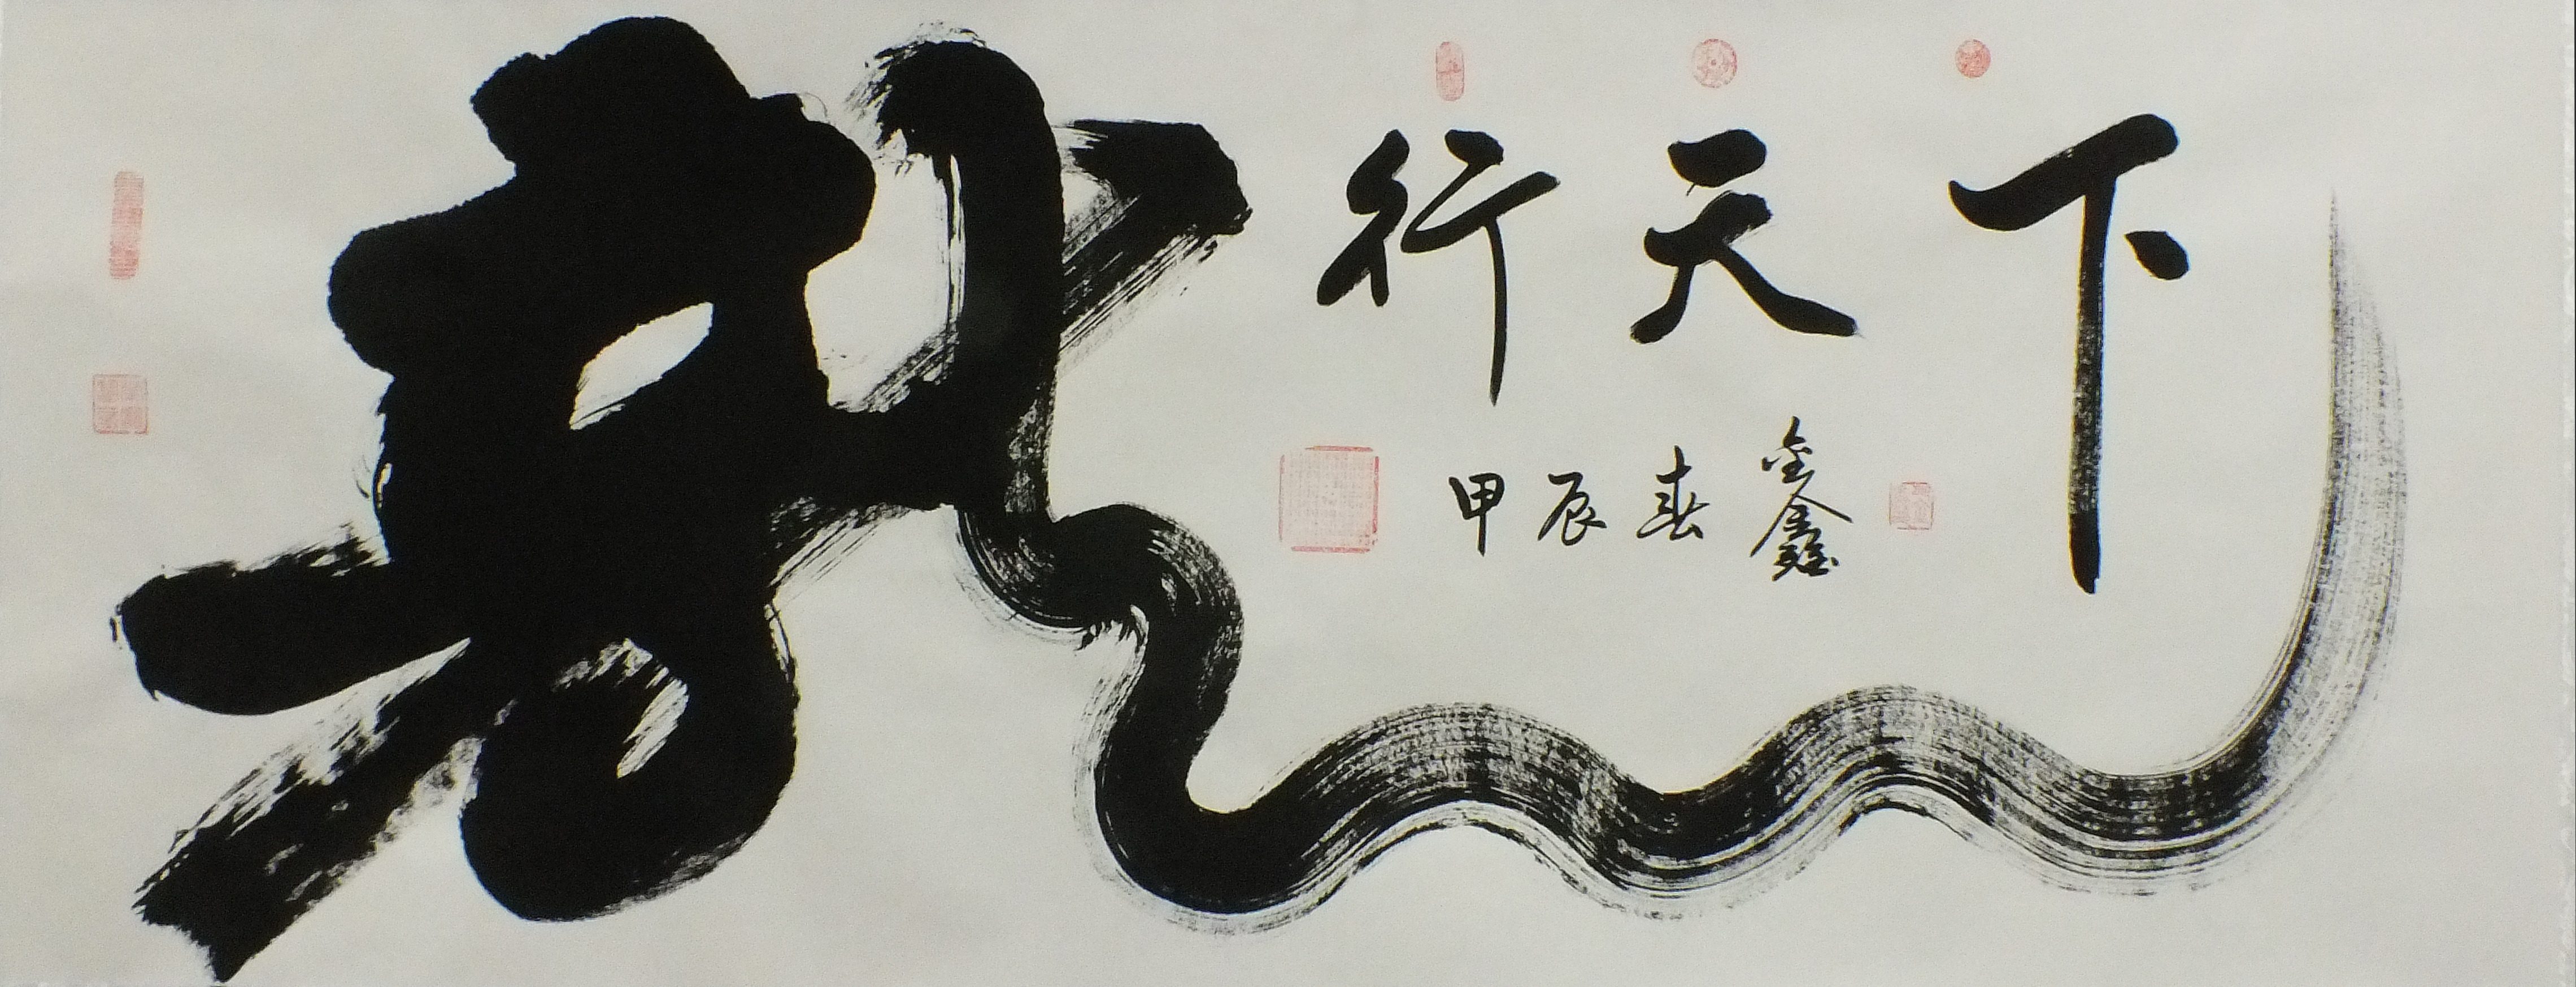 龍行天下
甲辰春金鑫